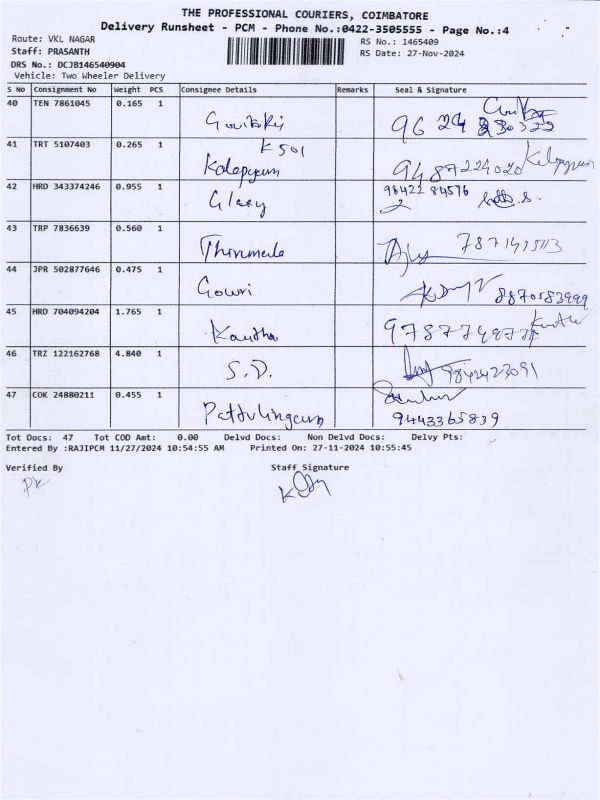 THE PROFESSIONAL COURIERS, COIMBATORE
Delivery Runsheet - PCM - Phone No.:0422-3505555 - Page No.:4
Route: VKL NAGAR
Staff: PRASANTH
DRS No.: DCJB146540904
Vehicle: Two Wheeler Delivery
RS No.: 1465409
RS Date: 27-Nov-2024
S No Consignment No Weight PCS Consignee Details Remarks Seal & Signature
40 TEN 7861045 0.165 1
41 TRT 5107403 0.265 1 K 501
42 HRD 343374246 0.955 1 98422 84576
43 TRP 7836639 0.560 1 Thirumala
44 JPR 502877646 0.475 1 Gowri 8870583999
45 HRD 704094204 1.765 1 Kavitha
46 TRZ 122162768 4.840 1 S.D. 9842423091
47 COK 24880211 0.455 1 Pattulingam 9443365839
Tot Docs: 47 Tot COD Amt: 0.00 Delvd Docs: Non Delvd Docs: Delvy Pts:
Entered By :RAJIPCM 11/27/2024 10:54:55 AM Printed On: 27-11-2024 10:55:45
Verified By Staff Signature